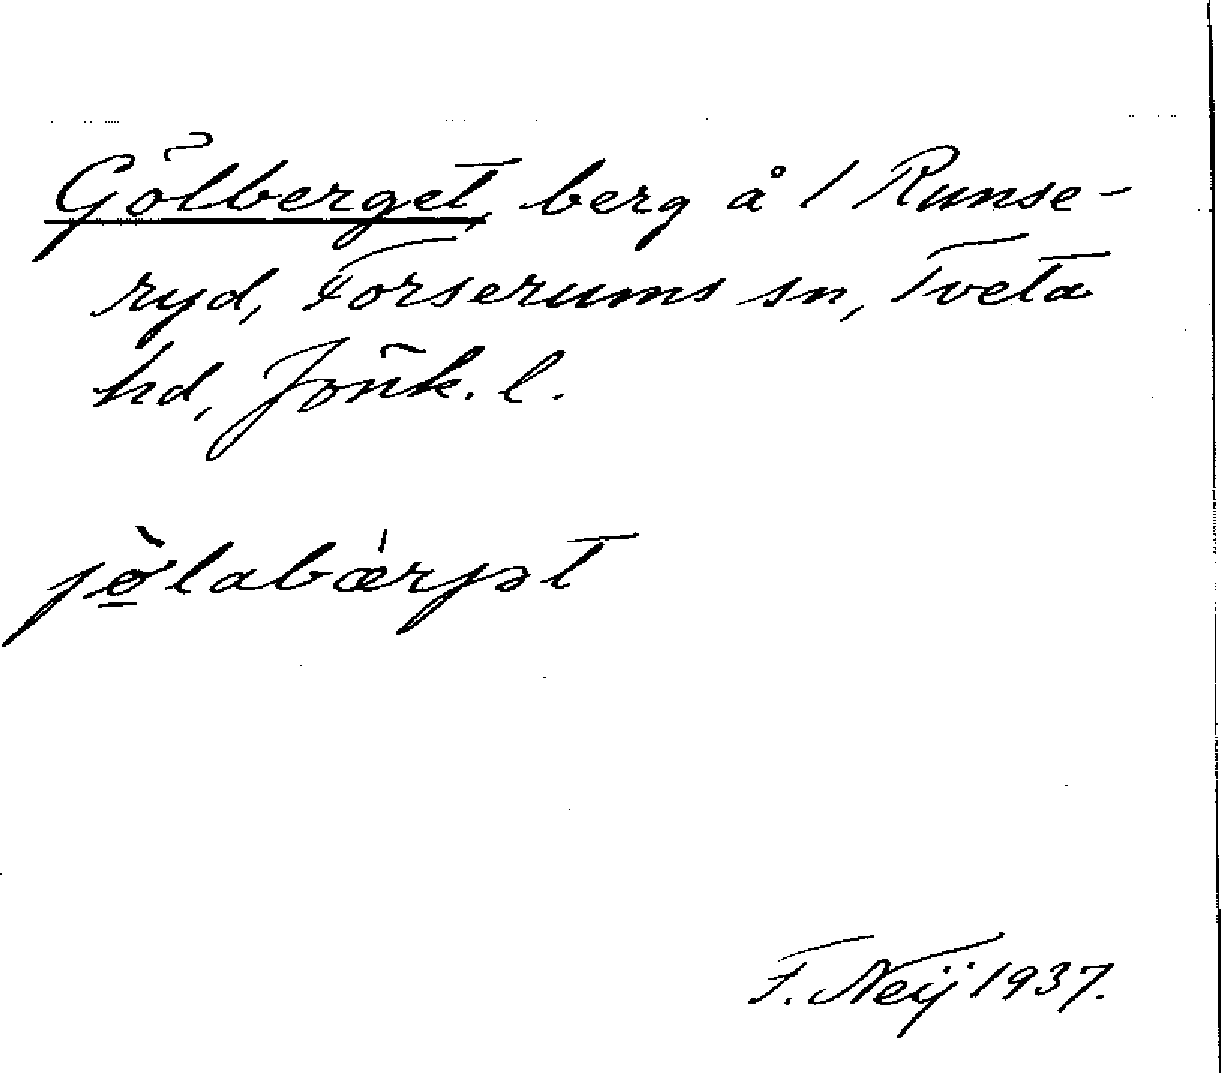 Gölberget, berg å 1 Runse-
ryd, Forserums sn, Tveta
hd, Jönk. l.
jö̀labæ̀rjət
F. Neij 1937.